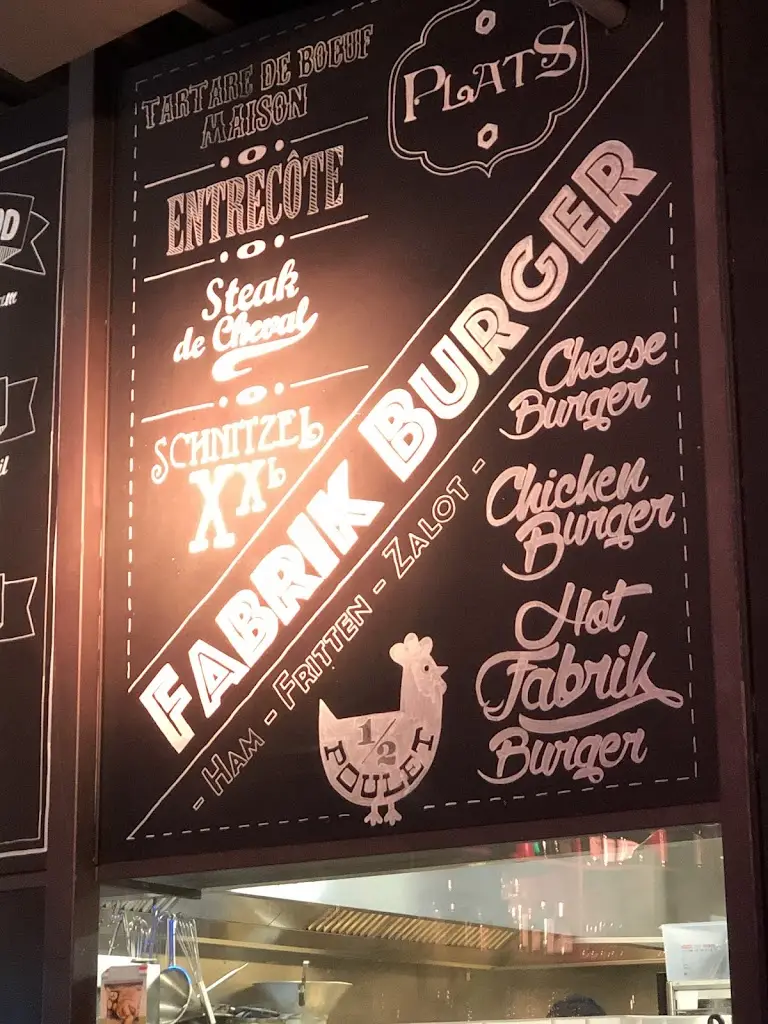 TARTARE DE BOEUF
MAISON
ENTRECÔTE
Steak
de Cheval
SCHNITZEL
XXL
PLATS
FABRIK BURGER
- HAM - FRITTEN - ZALOT -
1/2
POULET
Cheese
Burger
Chicken
Burger
Hot
Fabrik
Burger